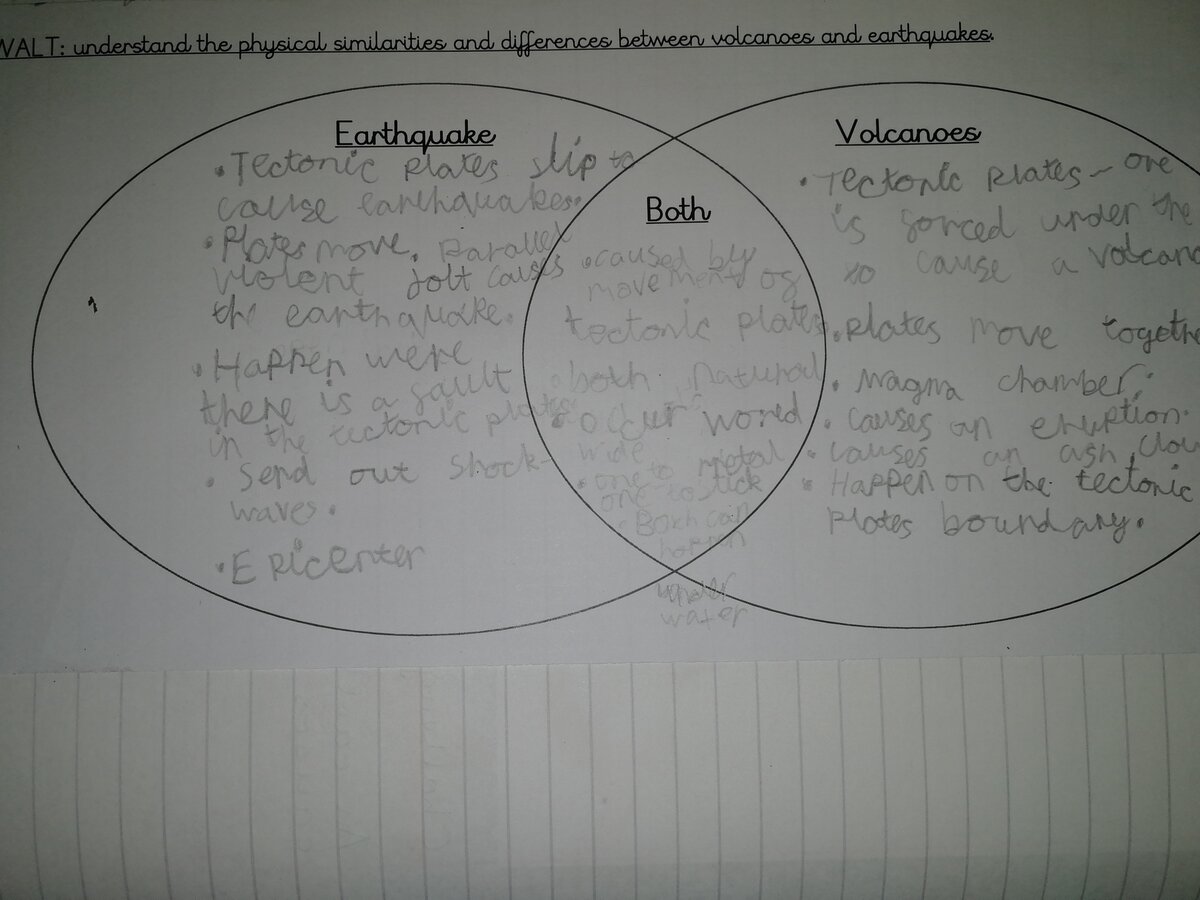 WALT: understand the physical similarities and differences between volcanoes and earthquakes.
Earthquake
• Tectonic plates slip to
cause earthquakes.
• Plates move. Parallel
violent jolt causes
the earthquake.
• Happen were
there is a fault
in the tectonic plates
• Send out shock-
waves.
• Epicenter
Both
• caused by
movement of
tectonic plates
both natural
• occur world
wide
• one to
one to stick
• Both can
happen
under
water
Volcanoes
• Tectonic plates - one
is forced under the
to cause a volcano
• Plates move together
• Magma chamber.
• Causes an eruption.
• Causes an ash clou
• Happen on the tectonic
plates boundary.